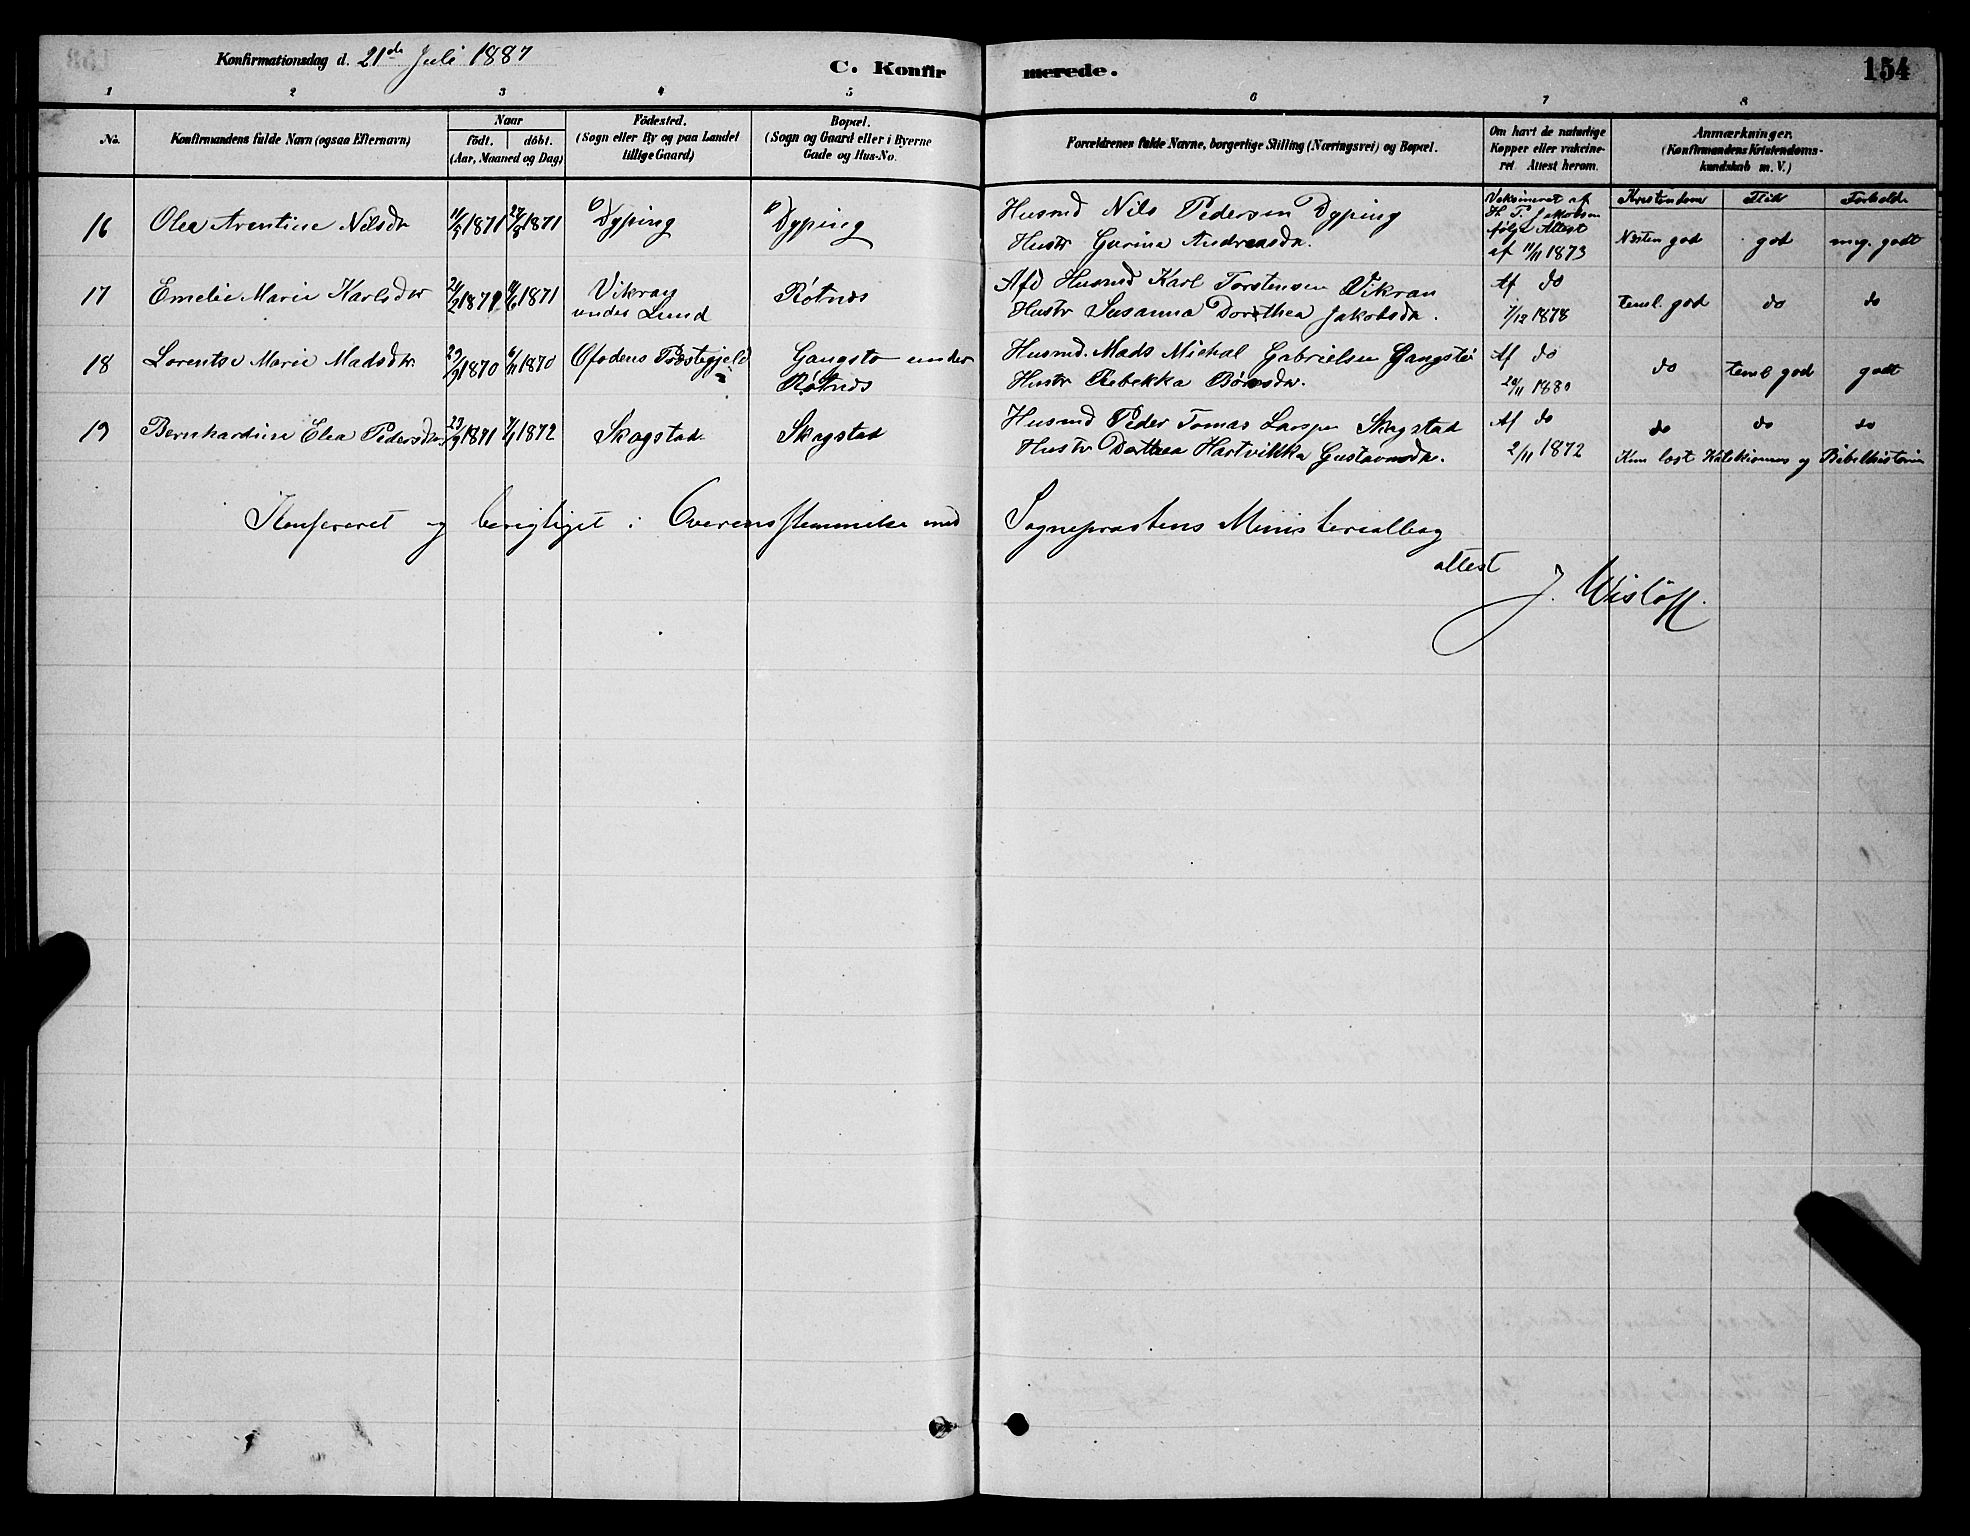 Konfirmationsdag d. 21de Juli 1887
C. Konfirmerede.
154
1 2 3 4 5 6 7 8
No.
Konfirmandens fulde Navn (ogsaa Efternavn)
Naar
født. døbt.
(Aar, Maaned og Dag)
Fødested.
(Sogn eller By og paa Landet
tillige Gaard)
Bopæl.
(Sogn og Gaard eller i Byerne
Gade og Hus-No.
Forældrenes fulde Navne, borgerlige Stilling (Næringsvei) og Bopæl.
Om havt de naturlige
Kopper eller vakcine-
ret. Attest herom.
Anmærkninger.
(Konfirmandens Kristendoms-
kundskab m. V.)
Kristendom Flid Forholde
16 Olea Arentine Nilsdr 11/5 1871 27/8 1871 Dyping Dyping
Husmd Nils Pedersen Dyping
Hustr Gurina Andreasdr.
Vaksineret af
H. P. Jakobsen
følge Attest
af 11/11 1873
Næsten god god meg. godt
17 Emelie Marie Karlsdr 24/2 1871 11/6 1871 Vikran
under Lund
Røtnes
Afd Husmd Karl Torstensen Vikran
Hustr Susanna Dorthea Jakobsdr.
Af do
7/12 1878
teml. god do do
18 Lorentse Marie Madsdr. 29/9 1870 6/11 1870 Ofodens Præstegjeld
Gangstø under
Røtnes
Husmd. Mads Michal Gabrielsen Gangstø
Hustr Rebekka Børsdr.
Af do
20/11 1880
do teml god godt
19 Bernhardine Elea Pedersdr 23/9 1871 7/1 1872 Skogstad Skogstad
Husmd Peder Tomas Larsen Skogstad
Hustr Dorthea Hartvikka Gustavsdr.
Af do
2/11 1872
do do do
Kun læst Katekismus og Bibelhistorie
Konfereret og berigtiget i Overensstemmelse med Sogneprestens Ministerialbog
attest
J. Wisløff.